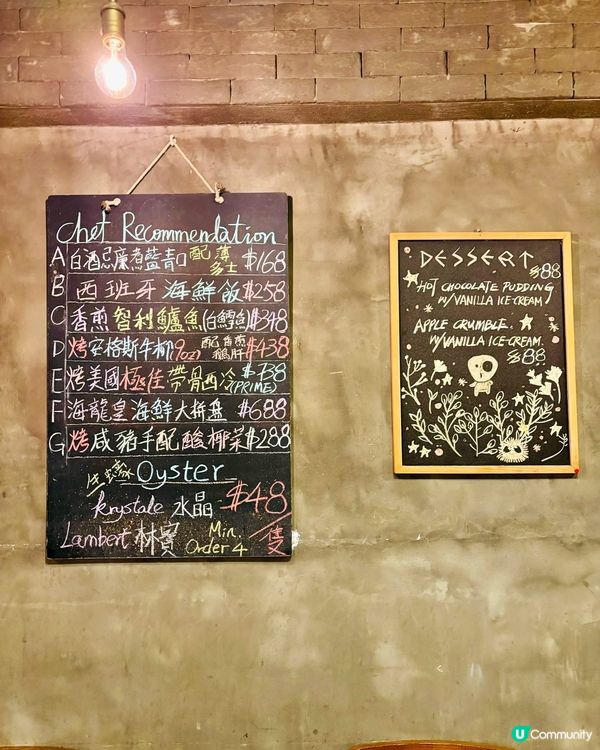 Chef Recommendation
A 白酒忌廉煮藍青口 配薄多士 $168
B 西班牙海鮮飯 $258
C 香煎智利鱸魚(白鱈魚) $348
D 烤安格斯牛柳(9oz) 配香煎鵝肝 $438
E 烤美國極佳帶骨西冷(PRIME) $738
F 海龍皇海鮮大拼盘 $688
G 烤咸豬手配酸椰菜 $288
生蠔 Oyster
krystale 水晶 $48/隻
Lambert 林賓 Min. Order 4
DESSERT
$88
HOT CHOCOLATE PUDDING
W/VANILLA ICE-CREAM
APPLE CRUMBLE.
W/VANILLA ICE-CREAM.
$88
U Community